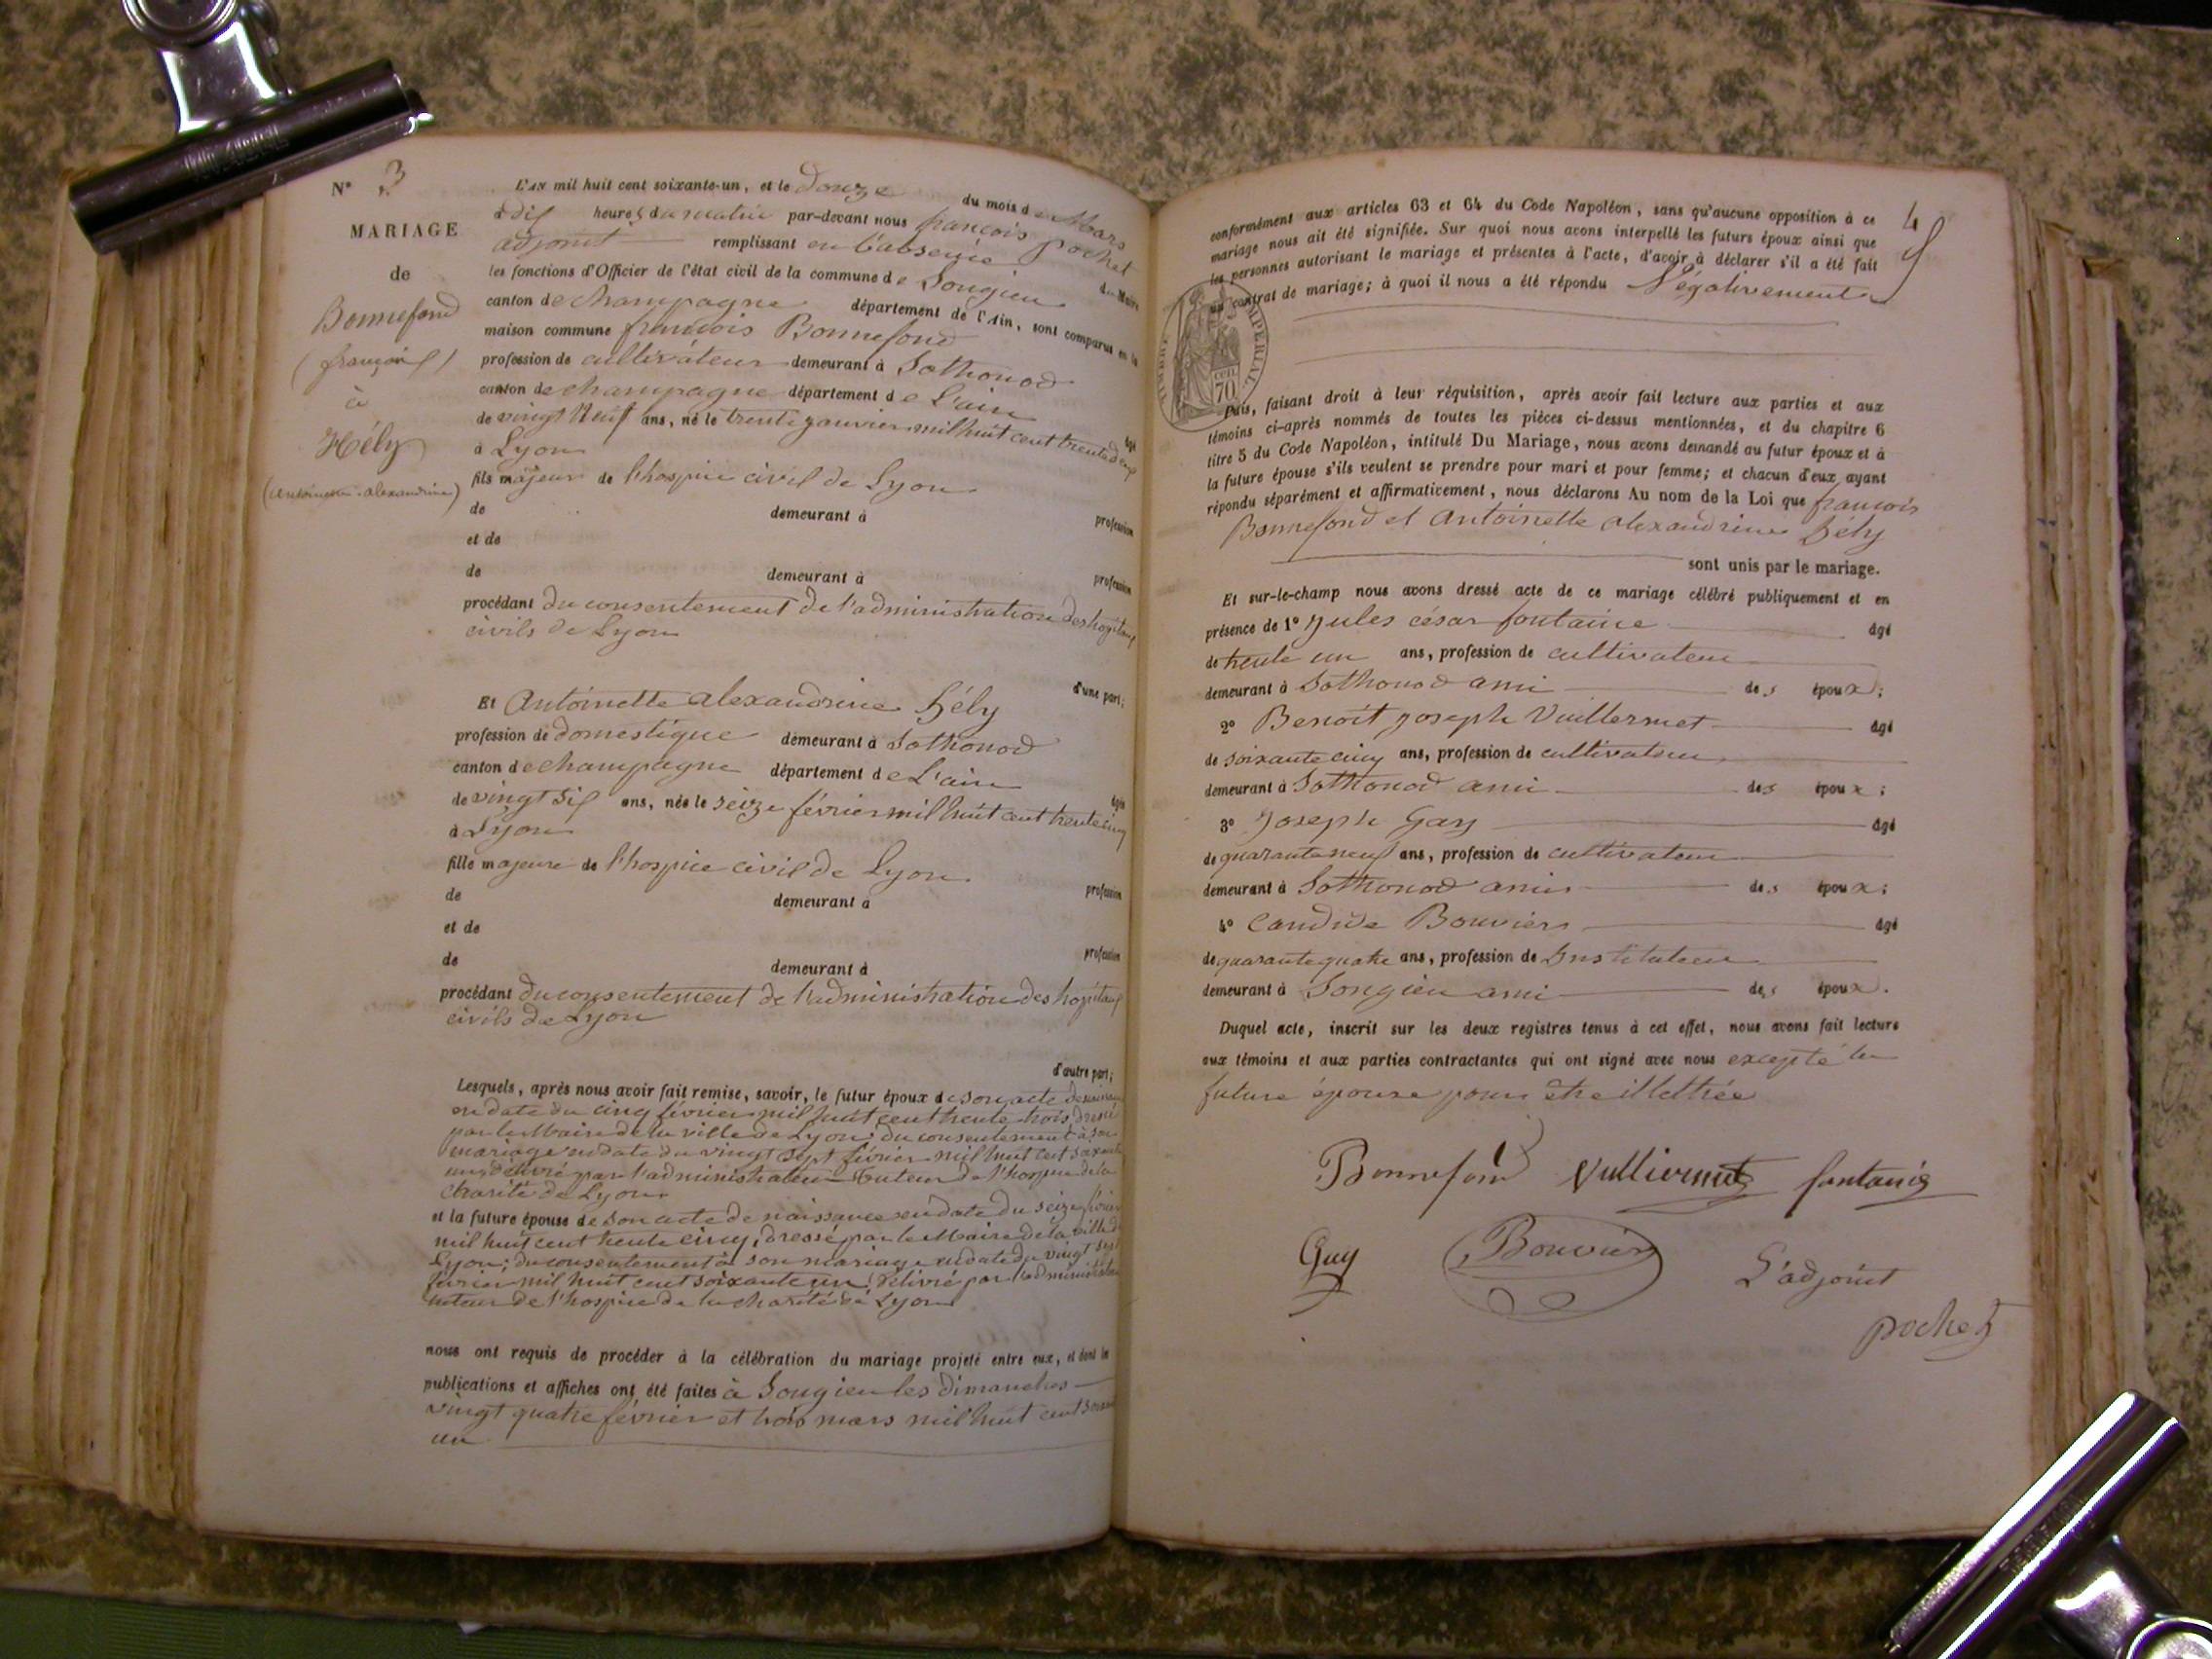 N° 3
MARIAGE
de
Bonnefond
(françois)
à
Hély
(antoinette alexandrine)
L'AN mil huit cent soixante-un, et le Douze du mois de Mars
à dix heures du matin par-devant nous françois pochet
adjoint remplissant en l'absence du Maire
les fonctions d'Officier de l'état civil de la commune de Songieu
canton de champagne département de l'Ain, sont comparus en la
maison commune françois Bonnefond
profession de cultivateur demeurant à Sothonod
canton de champagne département de L'ain âgé
de vingt Neuf ans, né le trente janvier mil huit cent trente deux
à Lyon
fils majeur de l'hospice civil de Lyon
de demeurant à profession
et de
de demeurant à profession
procédant du consentement de l'administration des hopitaux
civils de Lyon
d'une part;
Et Antoinette alexandrine hély
profession de domestique demeurant à Sothonod
canton de champagne département de L'ain âgée
de vingt six ans, née le seize février mil huit cent trente cinq
à Lyon
fille majeure de l'hospice civil de Lyon
de demeurant à profession
et de
de demeurant à profession
procédant du consentement de l'administration des hopitaux
civils de Lyon
d'autre part;
Lesquels, après nous avoir fait remise, savoir, le futur époux de son acte de naissance
en date du cinq février mil huit cent trente trois dressé
par le Maire de la ville de Lyon; du consentement à son
mariage en date du vingt sept février mil huit cent soixante
un, délivré par l'administrateur Tuteur de l'hospice de la
charité de Lyon
et la future épouse de son acte de naissance en date du seize février
mil huit cent trente cinq, dressé par le Maire de la ville de
Lyon; du consentement à son mariage en date du vingt sept
février mil huit cent soixante un, délivré par l'administrateur
tuteur de l'hospice de la charité de Lyon
nous ont requis de procéder à la célébration du mariage projeté entre eux, et dont les
publications et affiches ont été faites à Songieu les dimanches
vingt quatre février et trois mars mil huit cent soixante
un
4
conformément aux articles 63 et 64 du Code Napoléon, sans qu'aucune opposition à ce
mariage nous ait été signifiée. Sur quoi nous avons interpellé les futurs époux ainsi que
les personnes autorisant le mariage et présentes à l'acte, d'avoir à déclarer s'il a été fait
un contrat de mariage; à quoi il nous a été répondu Négativement
TIMBRE IMPERIAL
CEN.
70
Puis, faisant droit à leur réquisition, après avoir fait lecture aux parties et aux
témoins ci-après nommés de toutes les pièces ci-dessus mentionnées, et du chapitre 6
titre 5 du Code Napoléon, intitulé Du Mariage, nous avons demandé au futur époux et à
la future épouse s'ils veulent se prendre pour mari et pour femme; et chacun d'eux ayant
répondu séparément et affirmativement, nous déclarons Au nom de la Loi que françois
Bonnefond et Antoinette alexandrine hély
sont unis par le mariage.
Et sur-le-champ nous avons dressé acte de ce mariage célébré publiquement et en
présence de 1° Jules césar fontaine âgé
de trente un ans, profession de cultivateur
demeurant à Sothonod ami des époux;
2° Benoit joseph Vuillermet âgé
de soixante cinq ans, profession de cultivateur
demeurant à Sothonod ami des époux;
3° Joseph Gay âgé
de quarante neuf ans, profession de cultivateur
demeurant à Sothonod amis des époux;
4° Candide Bouvier âgé
de quarante quatre ans, profession de Instituteur
demeurant à Songieu ami des époux.
Duquel acte, inscrit sur les deux registres tenus à cet effet, nous avons fait lecture
aux témoins et aux parties contractantes qui ont signé avec nous excepté la
future épouse pour être illettrée
Bonnefond Vulliermet fontanie
Guy Bouvier L'adjoint
pochet